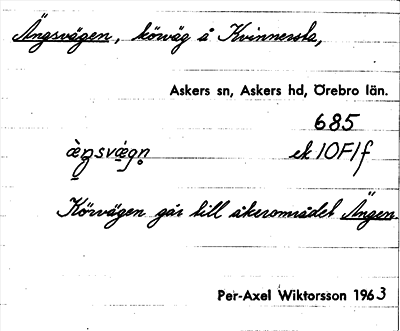 Ängsvägen, körväg å Kvinnersta,
Askers sn, Askers hd, Örebro län.
685
æ̀ŋsvæ̀gn̥ ek 10F1f
Körvägen går till åkerområdet Ängen.
Per-Axel Wiktorsson 1963